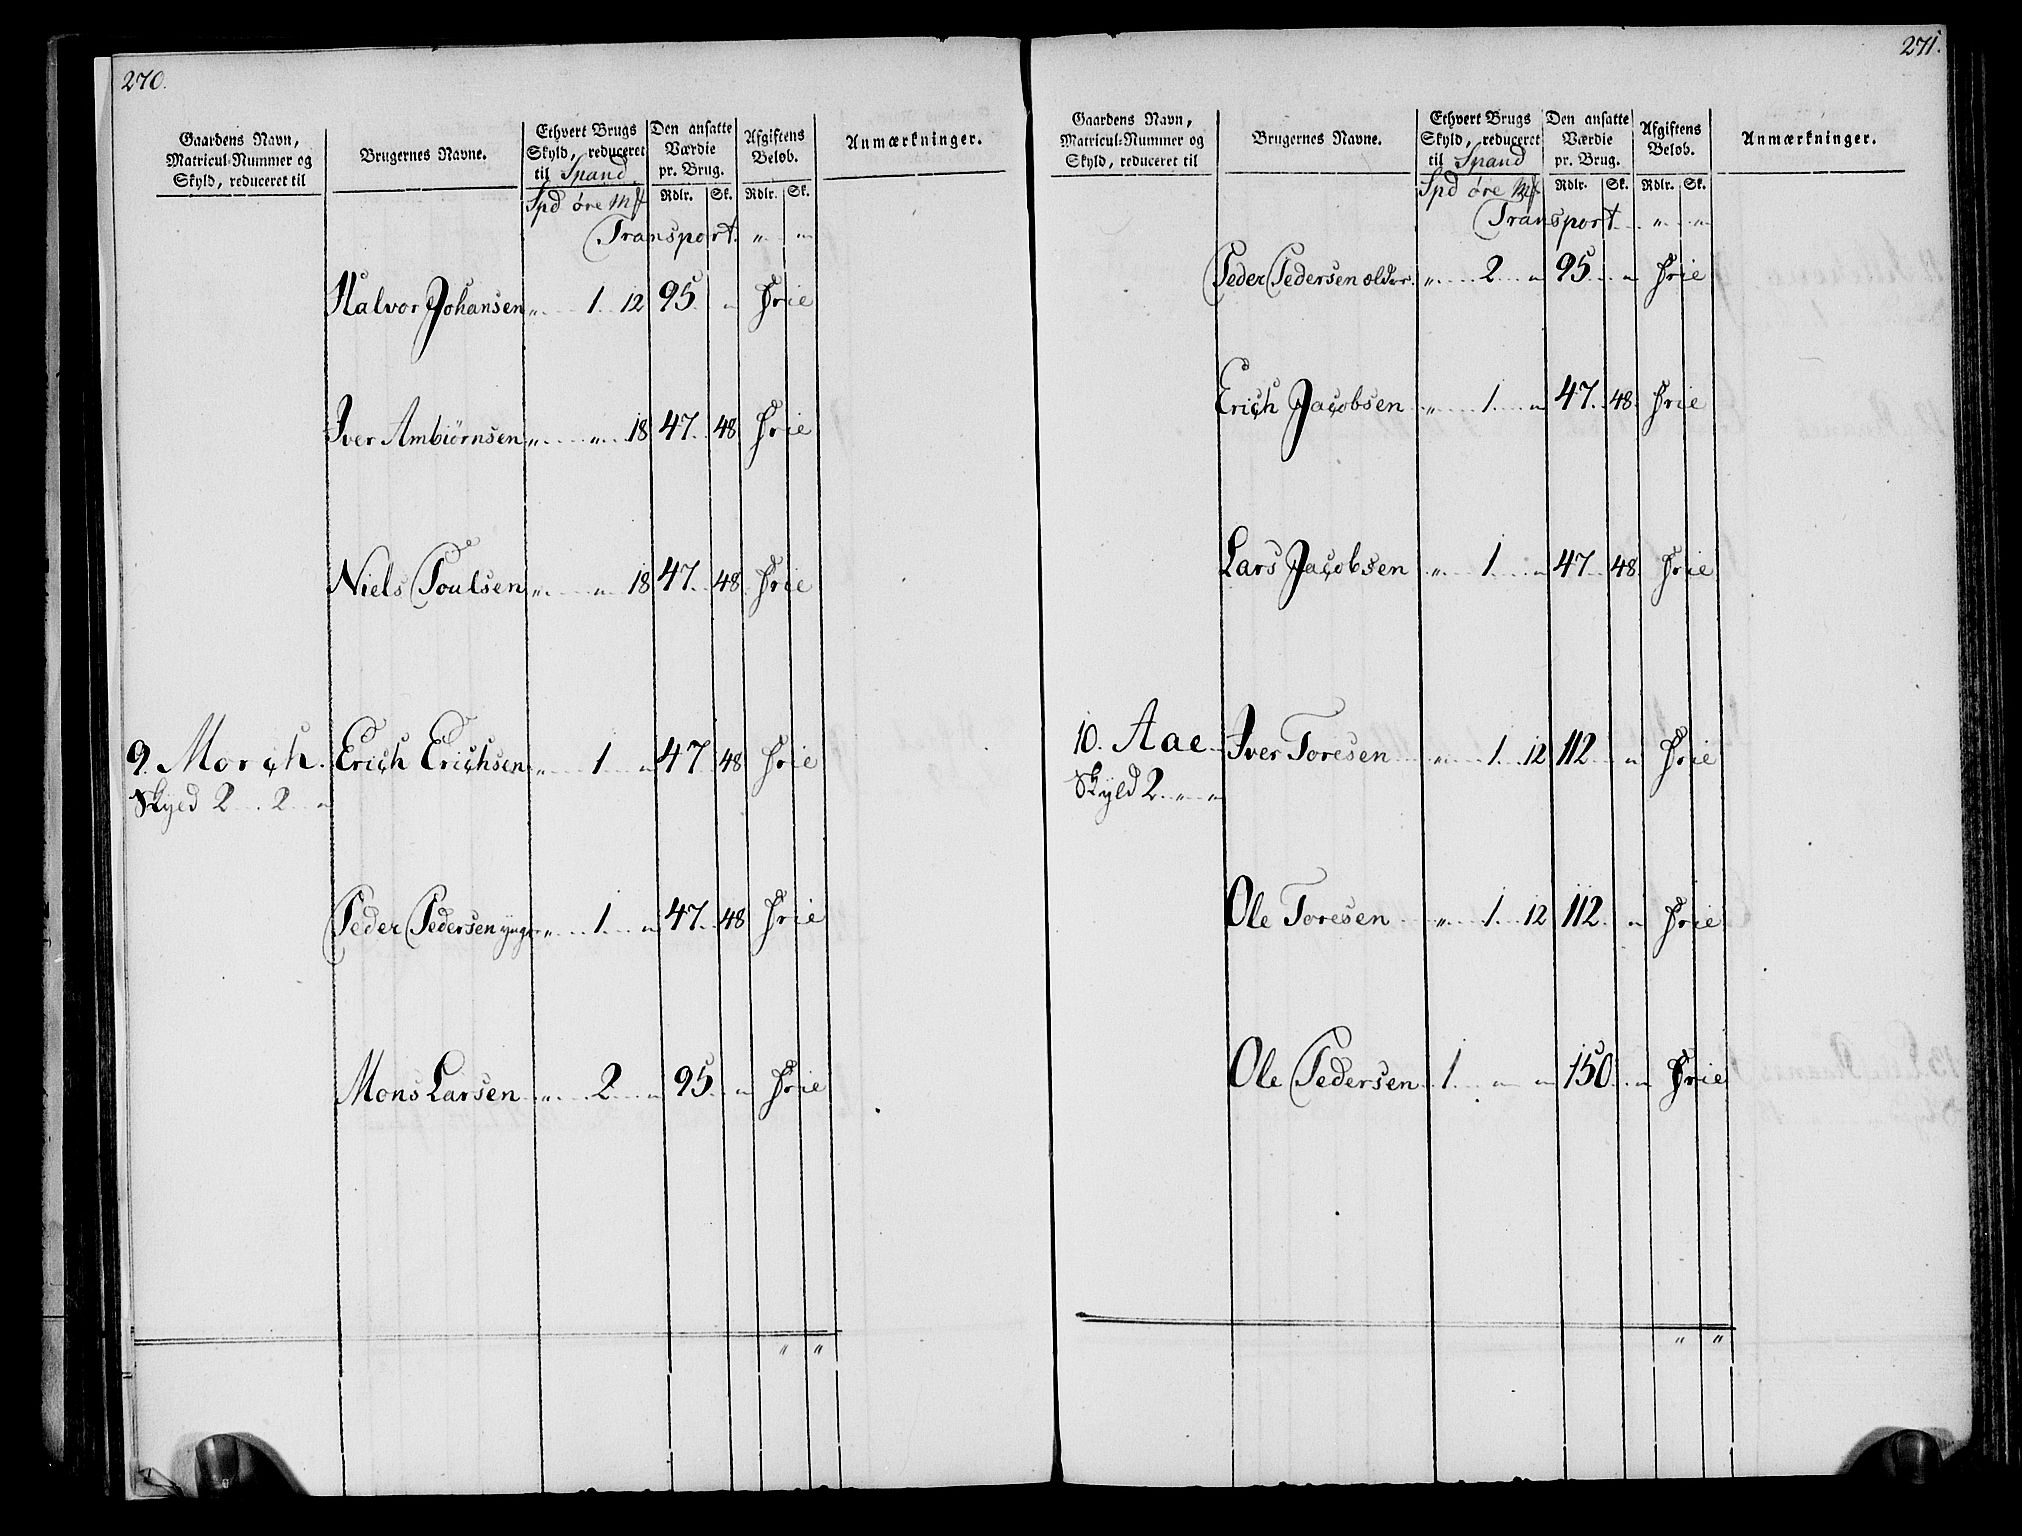 270.
Gaardens Navn,
Matricul-Nummer og
Skyld, reduceret til
Brugernes Navne.
Ethvert Brugs
Skyld, reduceret
til Spand.
Den ansatte
Værdie
pr. Brug.
Afgiftens
Beløb.
Anmærkninger.
Spd øre Mk Rdlr. Sk. Rdlr. Sk.
Transport. " "
Halvor Johansen " 1 12 95 " Frie
Iver Ambiørnsen " " 18 47 48 Frie
Niels Poulsen " " 18 47 48 Frie
9. Morch. Erich Erichsen " 1 " 47 48 Frie
Skyld 2 2 "
Peder Pedersen yngr " 1 " 47 48 Frie
Mons Larsen " 2 " 95 " Frie
" "
271.
Gaardens Navn,
Matricul-Nummer og
Skyld, reduceret til
Brugernes Navne.
Ethvert Brugs
Skyld, reduceret
til Spand
Den ansatte
Værdie
pr. Brug.
Afgiftens
Beløb.
Anmærkninger.
Spd øre Mk Rdlr. Sk. Rdlr. Sk.
Transport " "
Peder Pedersen ælder. " 2 " 95 " Frie
Erich Jacobsen " 1 " 47 48 Frie
Lars Jacobsen " 1 " 47 48 Frie
10. Aae Iver Toresen " 1 12 112 " Frie
Skyld 2 " "
Ole Toresen " 1 12 112 " Frie
Ole Pedersen 1 " " 150 " Frie
" "